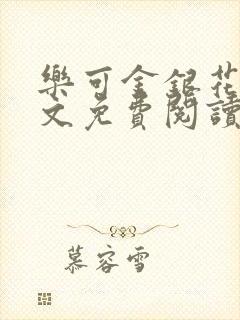 樂可金銀花
文免費閱讀
慕容雪